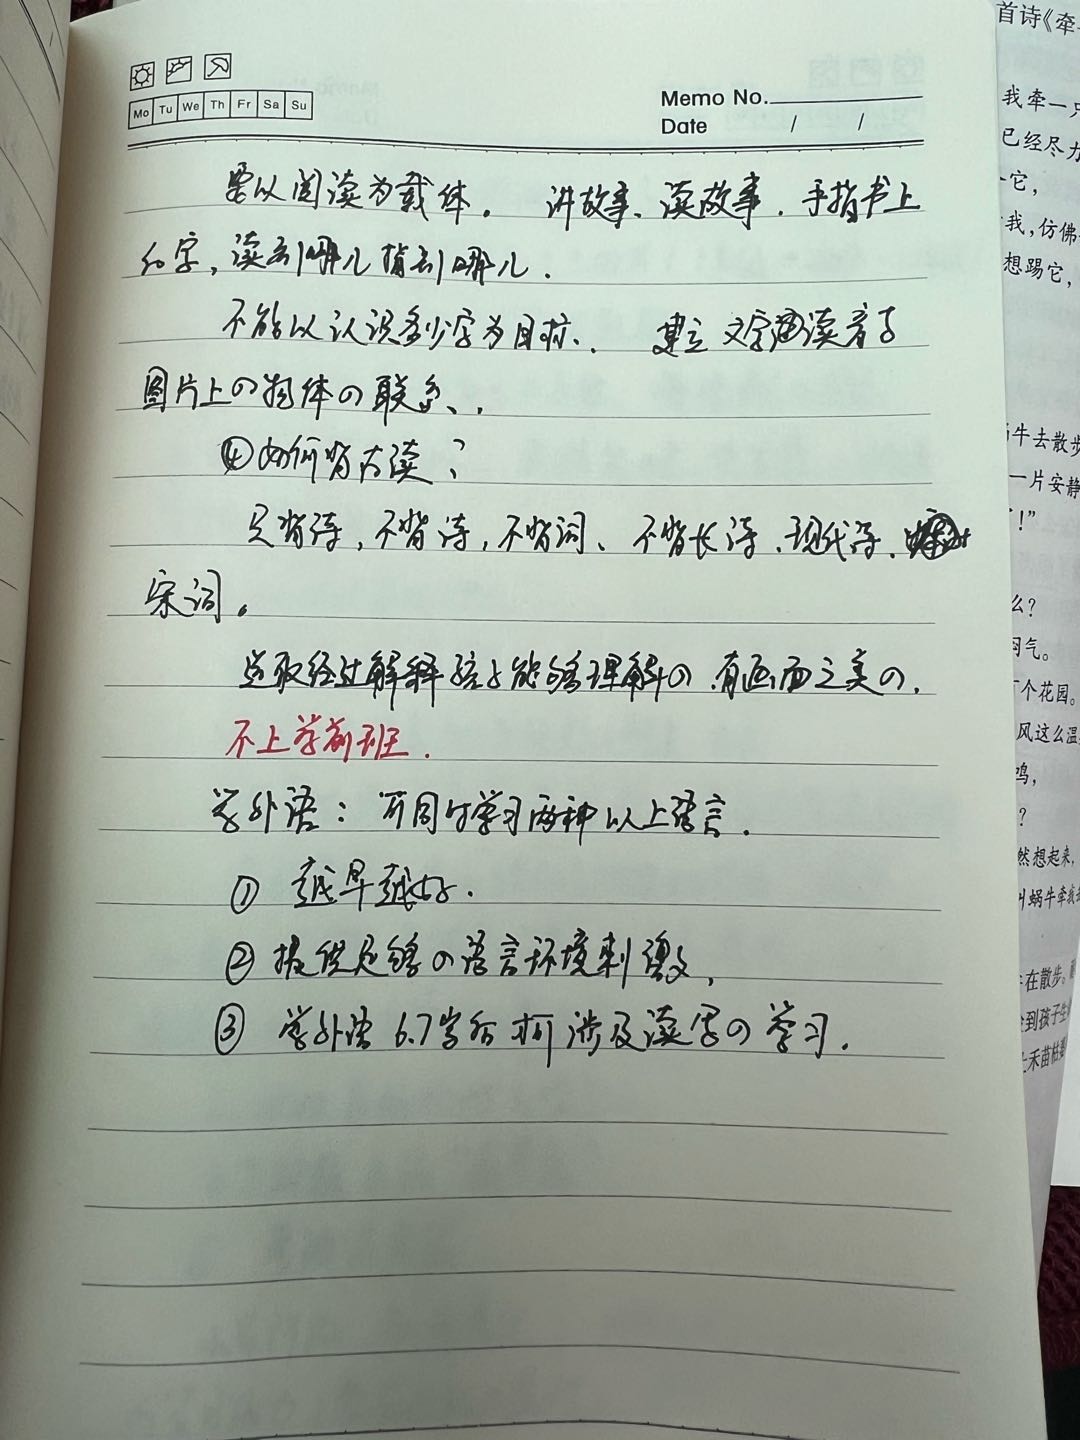 Mo Tu We Th Fr Sa Su
Memo No.
Date / /
要以阅读为载体。讲故事、读故事.手指书上
の字,读到哪儿指到哪儿.
不能以认识多少字为目标.建立文字 读音与
图片上の物体の联系.
④如何背古读?
只背诗,不背诗,不背词、不背长诗、现代诗、
宋词。
选取经过解释孩子能够理解の.有画面之美の.
不上学前班.
学外语:可同时学习两种以上语言.
① 越早越好.
② 提供足够の语言环境刺激,
③ 学外语6.7岁后才可涉及读写の学习.
首诗《牵
我牵一只
已经尽力
它,
我,仿佛
想踢它,
牛去散步
一片安静
!”
么?
闷气。
个花园。
风这么温
鸣,
?
然想起来,
叫蜗牛牵我
在散步。
到孩子生
禾苗枯